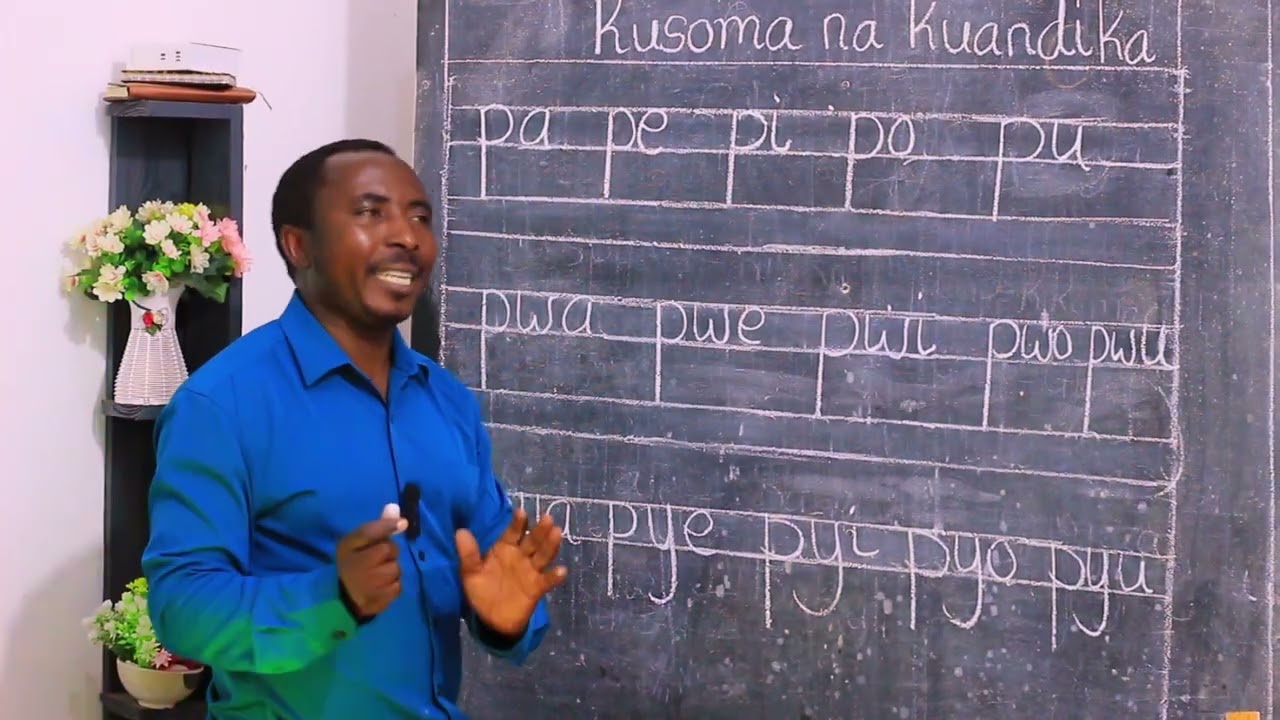 Kusoma na Kuandika
pa pe pi po pu
pwa pwe pwi pwo pwu
pye pyi pyo pyu